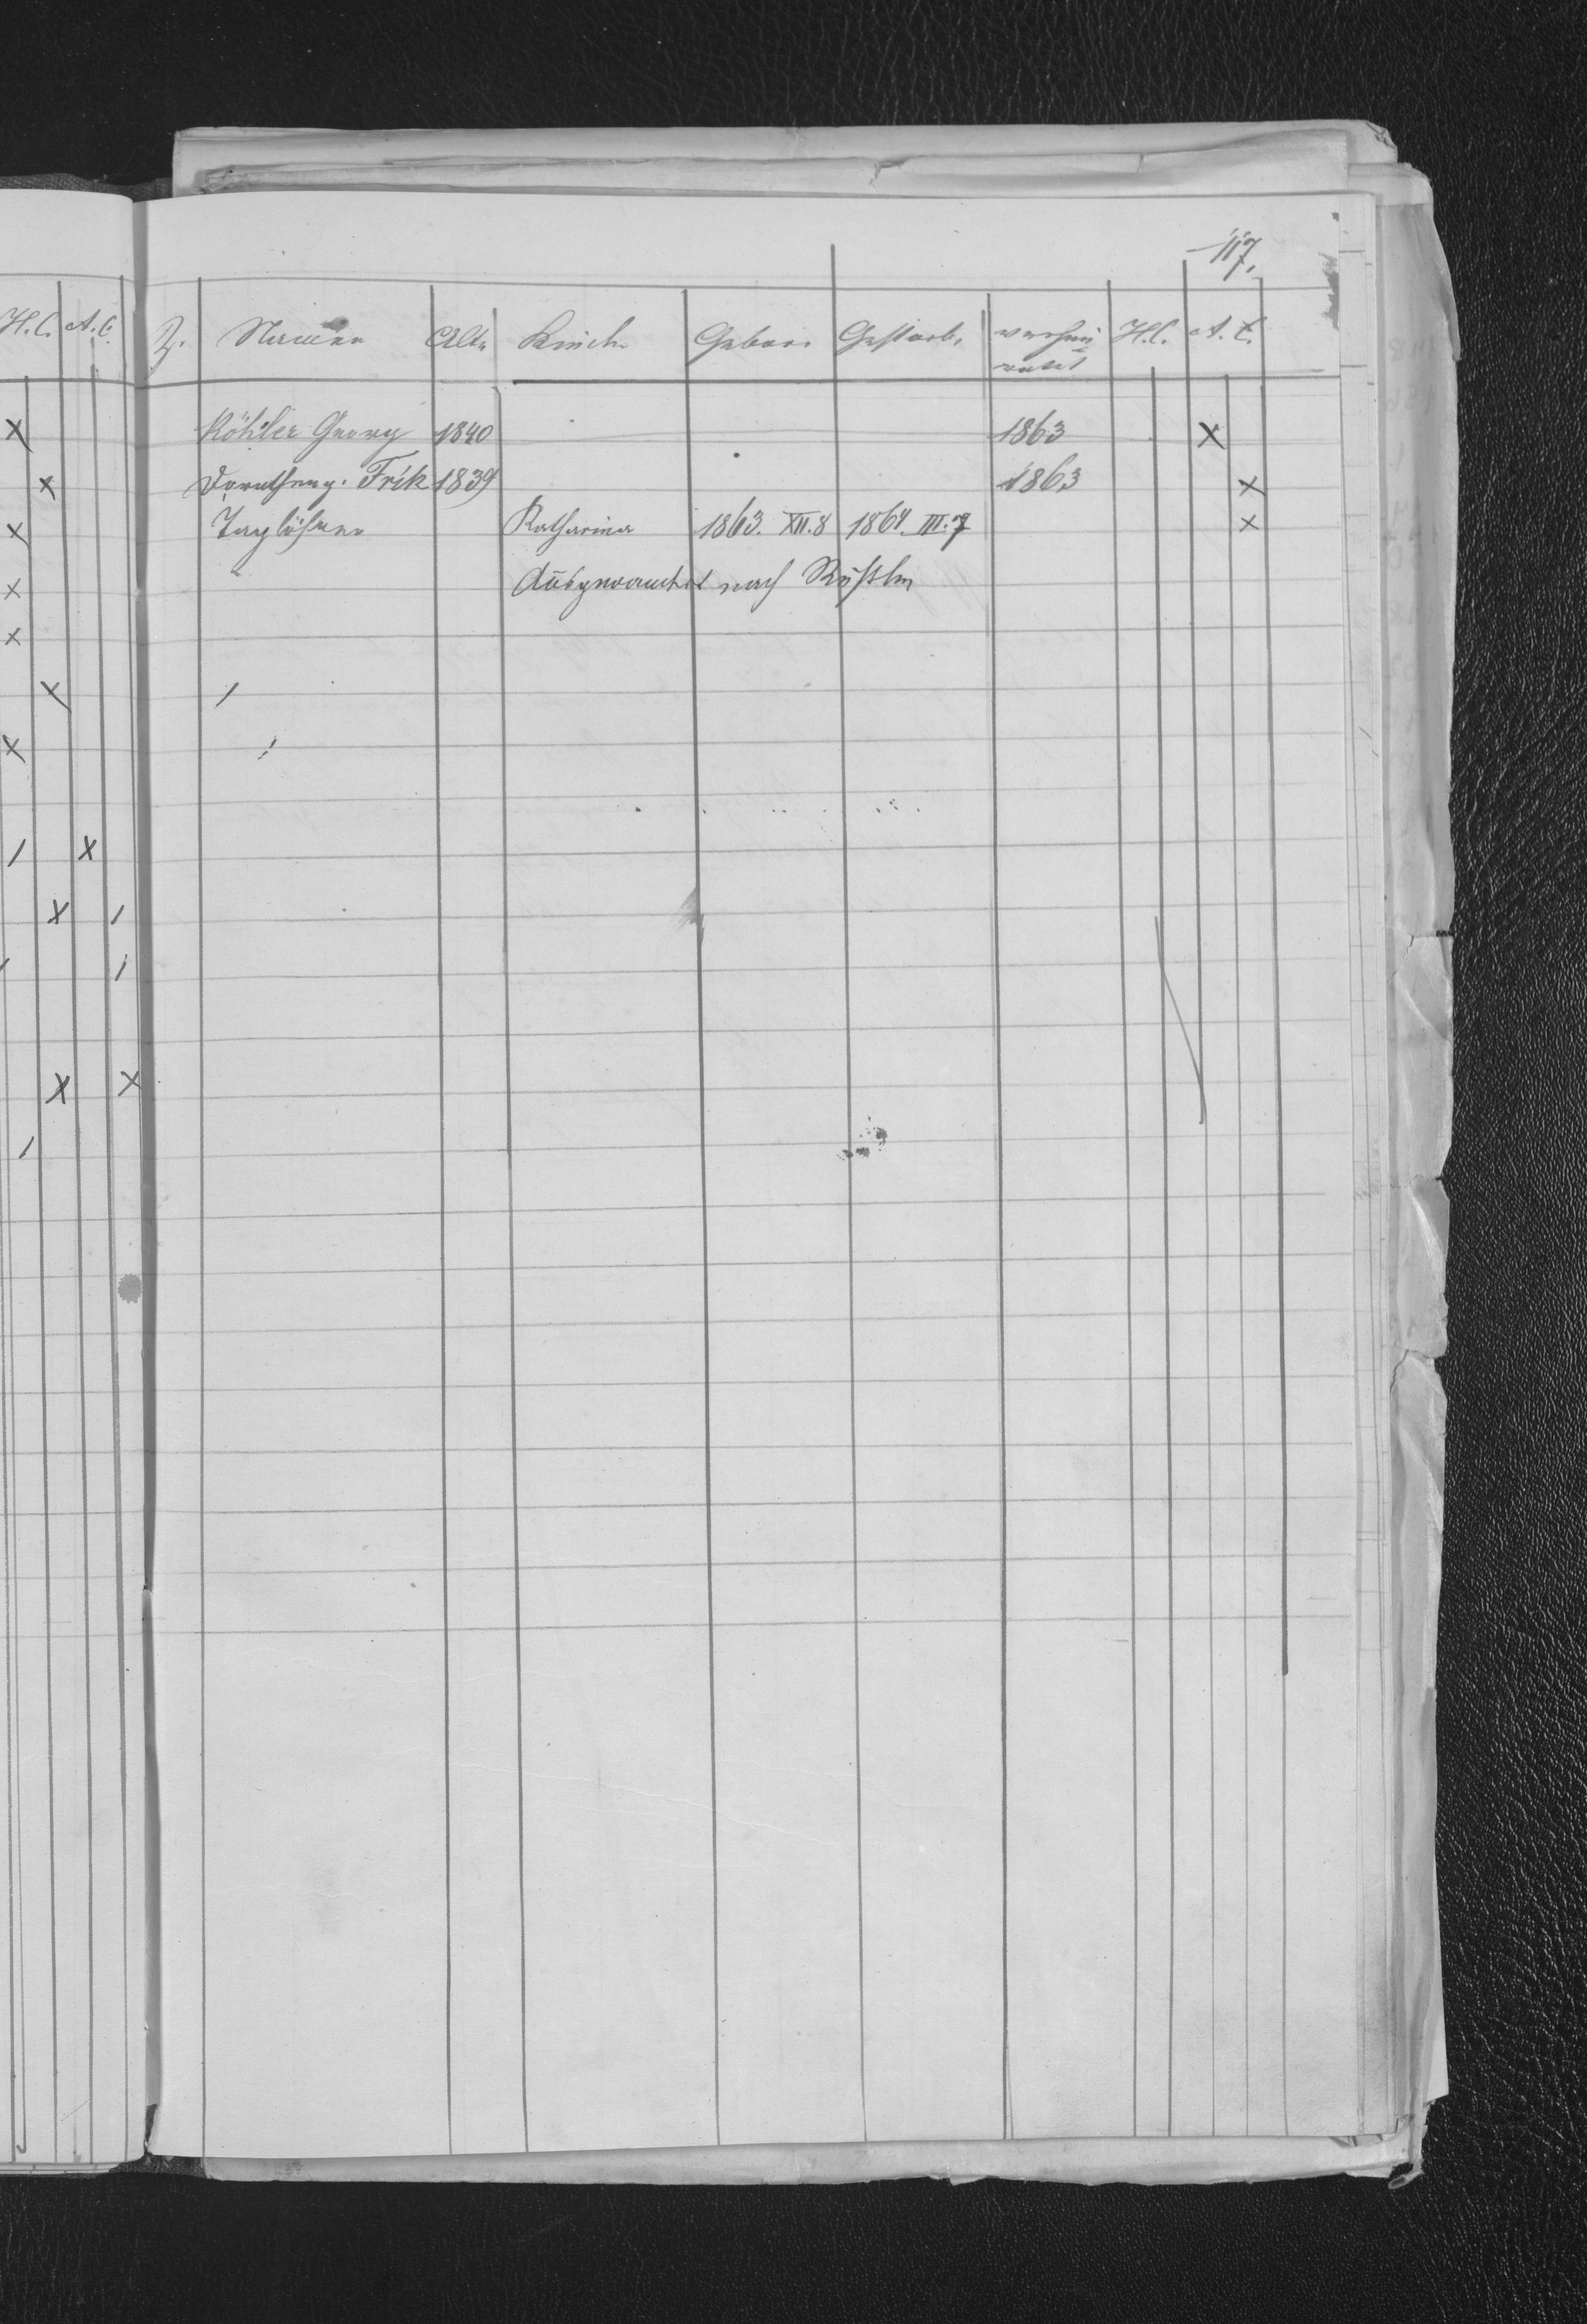 117.
H.C. A.C.
Z. Namen Alt. Kinder Gebor. Gestorb. verhei H.C. A.C.
ratet
Köhler Georg 1840 1863 x
Dorothea g. Frik 1839 1863 x
Taglöhner Katharina 1863. XII. 8 1864. III. 7 x
Ausgewandert nach